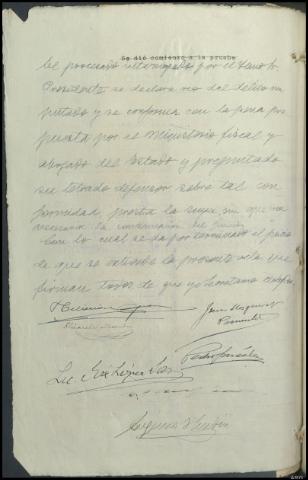 Se dió comienzo a la prueba
el procesado interrogado por el Señor
Presidente se declara reo del delito im
putado y se conforma con la pena pro
puesta por el Ministerio fiscal y
abogado del Estado y preguntado
su letrado defensor sobre tal con
formidad, presta la suya sin que sea
necesaria la continuación del Juicio
Con lo cual se da por terminado el juicio
de que se extiende la presente acta que
firman todos de que yo Secretario certifico
Lic. López
Pedro González
Eugenio